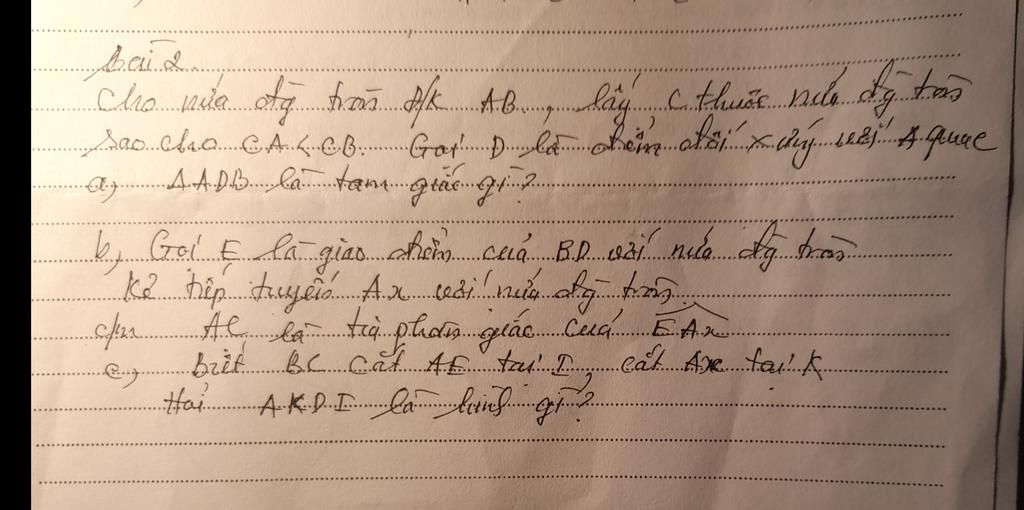 Bài 2.
Cho nửa đg̀ tròn đ/k AB, lấy C thuộc nửa đg̀ tròn
sao cho CA < CB. Gọi D là điểm đối xứng với A qua C
a, ΔADB là tam giác gì?
b, Gọi E là giao điểm của BD với nửa đg̀ tròn
Kẻ tiếp tuyến Ax với nửa đg̀ tròn.
c/m AC là tia phân giác của EAx
c, Biết BC cắt AE tại I, cắt Ax tại K
Hỏi AKDI là hình gì?